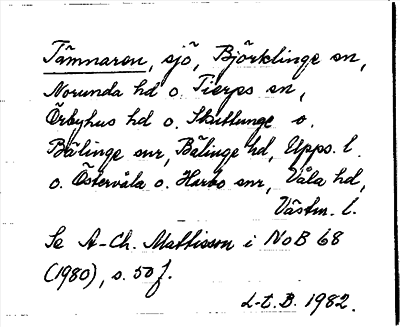 Tämnaren, sjö, Björklinge sn,
Norunda hd o. Tierps sn,
Örbyhus hd o. Skuttunge o.
Bälinge snr, Bälinge hd, Upps. l.
o. Östervåla o. Harbo snr, Våla hd,
Västm. l.
Se A-Ch. Mattisson i NoB 68
(1980), s. 50 f.
L-t. B. 1982.